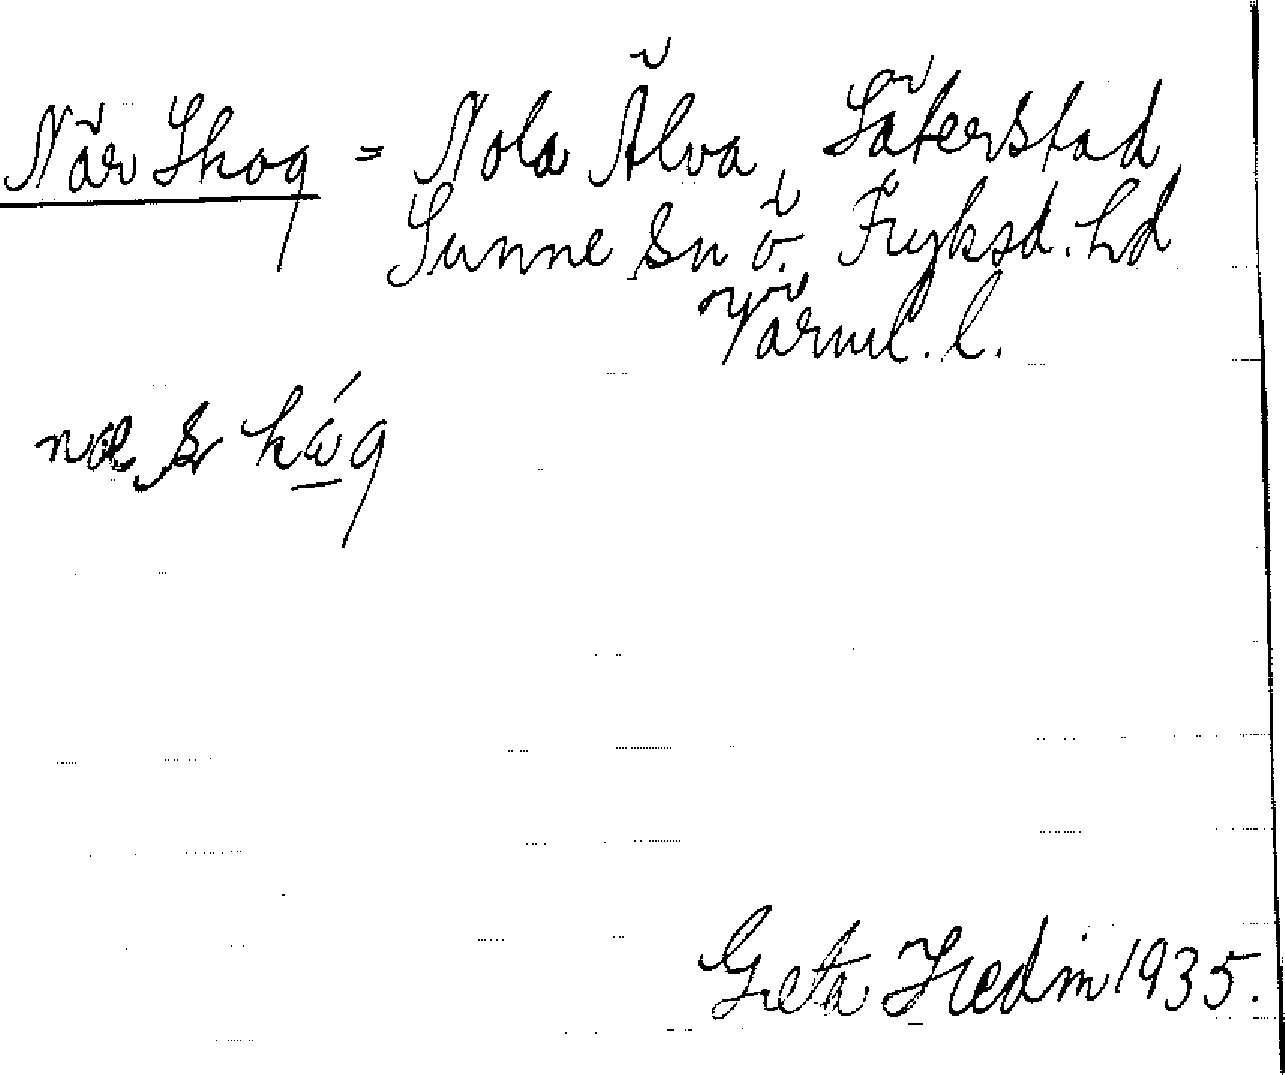 När Skog = Nola Älva, Säterstad
Sunne Sn ö. Fryksd. hd
Värml. l.
Greta Hedin 1935.